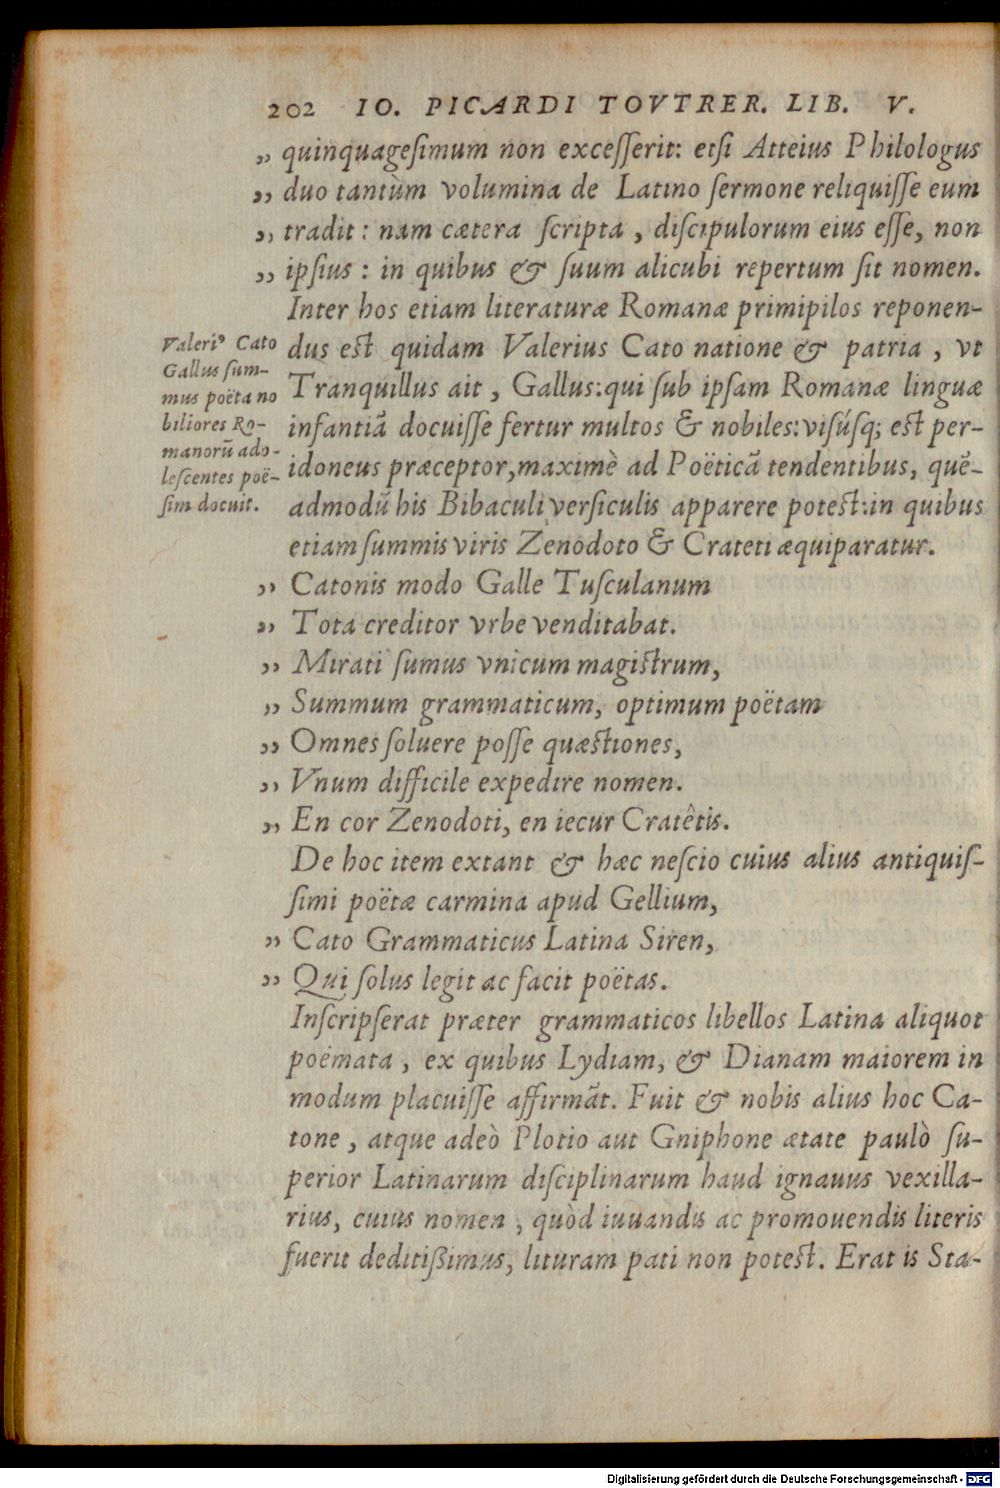 202 IO. PICARDI TOVTRER. LIB. V.
„ quinquageſimum non exceſſerit: etſi Atteius Philologus
„ duo tantùm volumina de Latino ſermone reliquiſſe eum
„ tradit: nam cætera ſcripta, diſcipulorum eius eſſe, non
„ ipſius: in quibus & ſuum alicubi repertum ſit nomen.
Inter hos etiam literaturæ Romanæ primipilos reponen-
dus eſt quidam Valerius Cato natione & patria, vt
Tranquillus ait, Gallus: qui ſub ipſam Romanæ linguæ
infantiã docuiſſe fertur multos & nobiles: viſúſq; eſt per-
idoneus præceptor, maximè ad Poëticã tendentibus, quē-
admodũ his Bibaculi verſiculis apparere poteſt: in quibus
etiam ſummis viris Zenodoto & Crateti æquiparatur.
Valeriꝰ Cato
Gallus ſum-
mus poëta no
biliores Ro-
manorũ ado-
leſcentes poë-
ſim docuit.
„ Catonis modo Galle Tuſculanum
„ Tota creditor vrbe venditabat.
„ Mirati ſumus vnicum magiſtrum,
„ Summum grammaticum, optimum poëtam
„ Omnes ſoluere poſſe quæſtiones,
„ Vnum difficile expedire nomen.
„ En cor Zenodoti, en iecur Cratêtis.
De hoc item extant & hæc neſcio cuius alius antiquiſ-
ſimi poëtæ carmina apud Gellium,
„ Cato Grammaticus Latina Siren,
„ Qui ſolus legit ac facit poëtas.
Inſcripſerat præter grammaticos libellos Latina aliquot
poëmata, ex quibus Lydiam, & Dianam maiorem in
modum placuiſſe affirmãt. Fuit & nobis alius hoc Ca-
tone, atque adeò Plotio aut Gniphone ætate paulò ſu-
perior Latinarum diſciplinarum haud ignauus vexilla-
rius, cuius nomen, quòd iuuandis ac promouendis literis
fuerit deditißimus, lituram pati non poteſt. Erat is Sta-
Digitalisierung gefördert durch die Deutsche Forschungsgemeinschaft - DFG